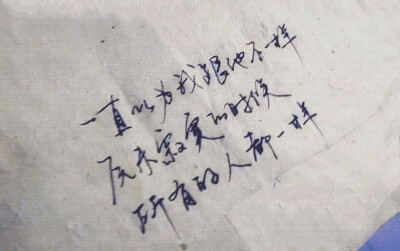 一直以为我跟他不一样
原来寂寞的时候
所有的人都一样